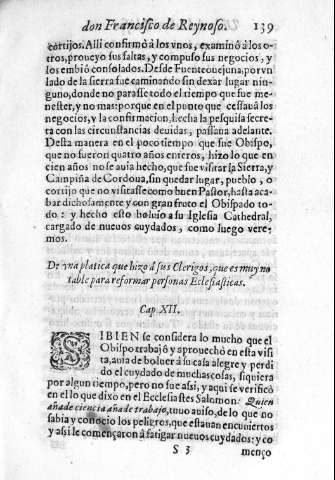 don Francisco de Reynoso. 139
cortijos. Alli confirmò à los vnos, examinô â los o-
tros, proueyo sus faltas, y compuso sus negocios, y
los embiô consolados. Desde Fuenteouejuna, por vn
lado de la sierra fue caminando sin dexar lugar nin-
guno, donde no parasse todo el tiempo que fue me-
nester, y no mas: porque en el punto que cessauâ los
negocios, y la confirmacion, hecha la pesquisa secre-
ta con las circunstancias deuidas, passaua adelante.
Desta manera en el poco tiempo que fue Obispo,
que no fueron quatro años enteros, hizo lo que en
cien años no se auia hecho, que fue visitar la Sierra, y
Campiña de Cordoua, sin quedar lugar, pueblo, o
cortijo que no visitasse como buen Pastor, hasta aca-
bar dichosamente y con gran fruto el Obispado to-
do: y hecho esto boluio a su Iglesia Cathedral,
cargado de nueuos cuydados, como luego vere-
mos.
De vna platica que hizo â sus Clerigos, que es muy no
table para reformar personas Eclesiasticas.
Cap. XII.
SI BIEN se considera lo mucho que el
Obispo trabajò y aprouechò en esta visi
ta, auia de boluer â su casa alegre y perdi
do el cuydado de muchas cosas, siquiera
por algun tiempo, pero no fue assi, y aqui se verificò
en el lo que dixo en el Ecclesiastes Salomon: Quien
añade ciencia añade trabajo, tuuo auiso, de lo que no
sabia y conocio los peligros, que estauan encubiertos
y assi le començaron â fatigar nueuos cuydados: y co
S 3 menço